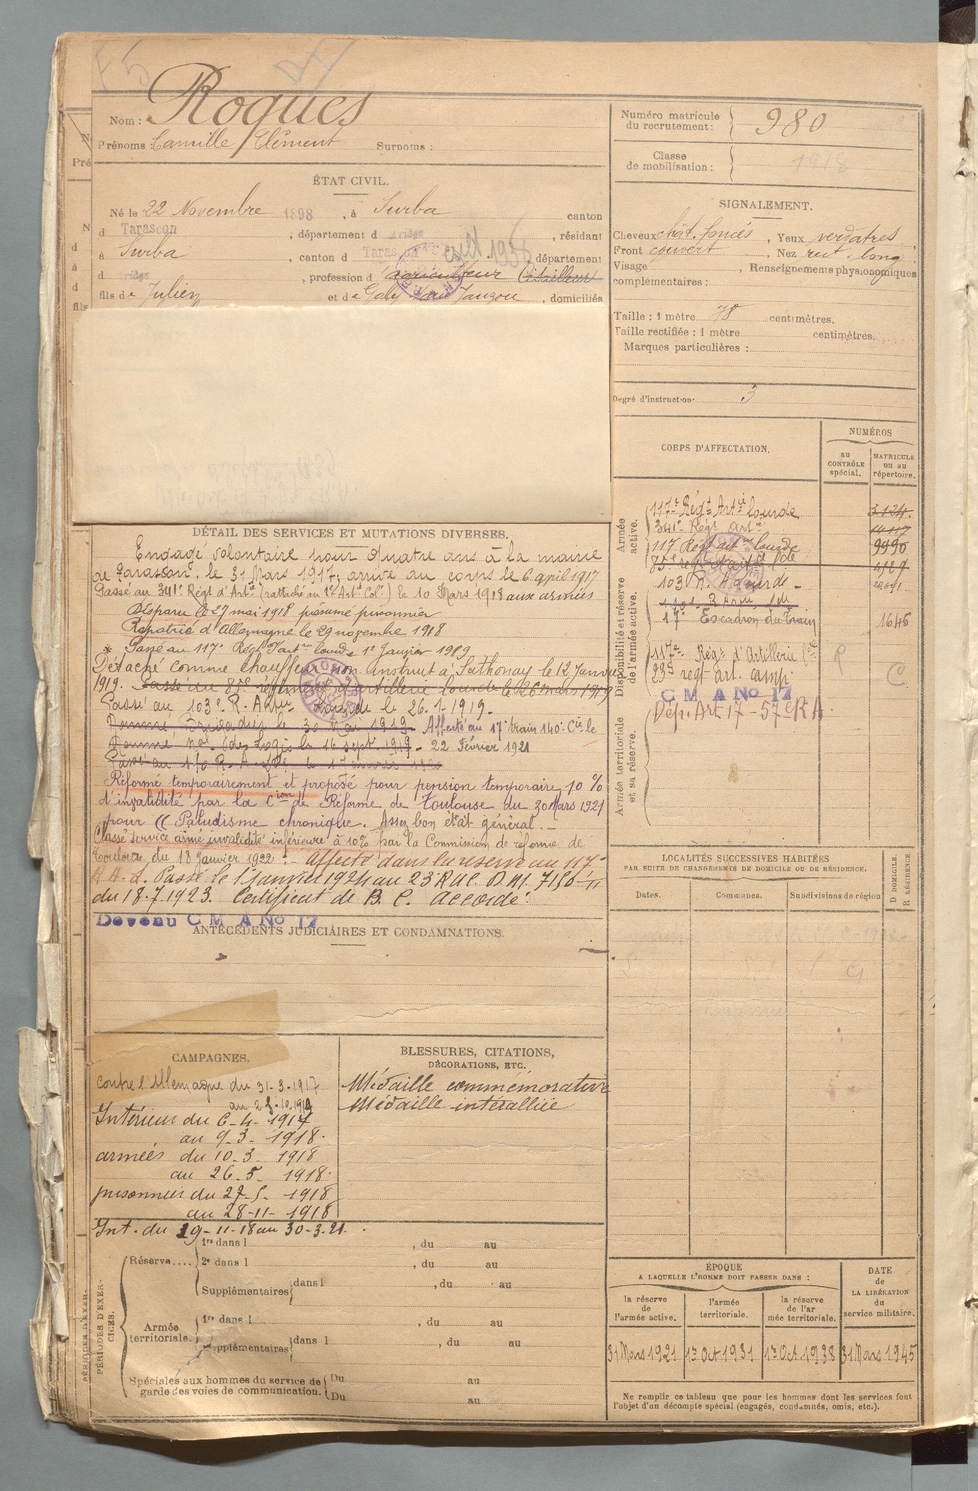 Nom : Roques
Prénoms : Camille Clément Surnoms :
ÉTAT CIVIL.
Né le 22 Novembre 1898, à Surba canton
d Tarascon, département d Ariège, résidant
à Surba, canton d Tarascon, département
d Ariège, profession d agriculteur
fils de Julien et de Galy, domiciliés
DÉTAIL DES SERVICES ET MUTATIONS DIVERSES.
Engagé volontaire pour quatre ans à la mairie
de Tarascon, le 31 Mars 1917, arrivé au corps le 6 april 1917
Passé au 341e Régt d'Artie (rattaché au 1er Artie Cole) le 10 Mars 1918 aux armées
Disparu le 27 mai 1918 présumé prisonnier
Rapatrié d'Allemagne le 29 novembre 1918
Passé au 117e Régt d'Artie lourde 1er Janvier 1919
Détaché comme chauffeur non instruit à Sathonay le 12 Janvier
1919. Passé au régiment d'artillerie lourde le 26 mars 1919
Passé au 103e R. A. Lourde le 26-1-1919.
Nommé Brigadier le 30 Mai 1919 Affecté au 17e train 140e Cie le
Nommé Mal des Logis le 16 sept. 1919 - 22 Février 1921
Réformé temporairement et proposé pour pension temporaire 10 %
d'invalidité par la Cion de Réforme de Toulouse du 30 Mars 1921
pour (( Paludisme chronique. Assez bon état général. -
Classé service armé invalidité inférieure à 10% par la Commission de réforme de
Toulouse, du 18 Janvier 1922. - affecté dans la réserve au 117e
R.A.L. Passé le 1er janvier 1924 au 23 RAC D.M. 7156
du 18.7.1923. Certificat de B. C. accordé.
Devenu C M A No 17
ANTÉCÉDENTS JUDICIAIRES ET CONDAMNATIONS.
CAMPAGNES.
Contre l'Allemagne du 31-3-1917
Intérieur du 6-4-1917
au 9-3-1918.
armées du 10-3-1918
au 26-5-1918.
prisonnier du 27-5-1918
du 28-11-1918
Int. du 29-11-18 au 30-3-21.
BLESSURES, CITATIONS,
DÉCORATIONS, ETC.
Médaille commémorative
Médaille interalliée
PÉRIODES D'EXERCICES.
Réserve....
1re dans l , du au
2e dans l , du au
Supplémentaires dans l , du au
Armée
territoriale.
1re dans l , du au
Supplémentaires dans l , du au
Spéciales aux hommes du service de
garde des voies de communication.
Du au
Du au
Numéro matricule
du recrutement : 980
Classe
de mobilisation : 1918
SIGNALEMENT.
Cheveux chât. foncés, Yeux verdâtres
Front couvert, Nez rect. long
Visage , Renseignements physionomiques
complémentaires :
Taille : 1 mètre 78 centimètres.
Taille rectifiée : 1 mètre centimètres.
Marques particulières :
Degré d'instruction 3
CORPS D'AFFECTATION.
NUMÉROS
au
CONTRÔLE
spécial.
MATRICULE
ou au
répertoire.
Armée
active.
117e Régt Artie lourde
341e Régt Artie
117 Régt artie lourde 9990
103 R. A. Lourde -
Disponibilité et réserve
de l'armée active.
17e Escadron du train 1646
117e Régt d'Artillerie R
23e régt art. camp. C
C M A No 17
Dép. Art. 17 - 57e R A
Armée territoriale
et sa réserve.
LOCALITÉS SUCCESSIVES HABITÉES
PAR SUITE DE CHANGEMENTS DE DOMICILE OU DE RÉSIDENCE.
Dates.
Communes.
Subdivisions de région
D DOMICILE.
R RÉSIDENCE
ÉPOQUE
A LAQUELLE L'HOMME DOIT PASSER DANS :
la réserve
de
l'armée active.
l'armée
territoriale.
la réserve
de l'armée territoriale.
DATE
de
LA LIBÉRATION
du
service militaire.
31 Mars 1921
1er Oct 1931
1er Oct. 1938
31 Mars 1945
Ne remplir ce tableau que pour les hommes dont les services font
l'objet d'un décompte spécial (engagés, condamnés, omis, etc.).